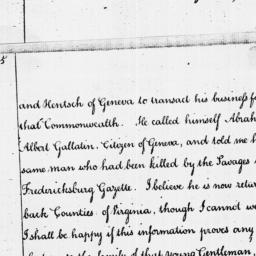 5
and Hentsch of Geneva to transact his business f
that Commonwealth. He called himself Abrah
Albert Gallatin. Citizen of Geneva, and told me h
same man who had been killed by the Savages
Fredericksburg Gazette. I believe he is now retur
back Counties of Virginia, though I cannot w
I shall be happy if this information proves any
to the family of that young Gentleman,